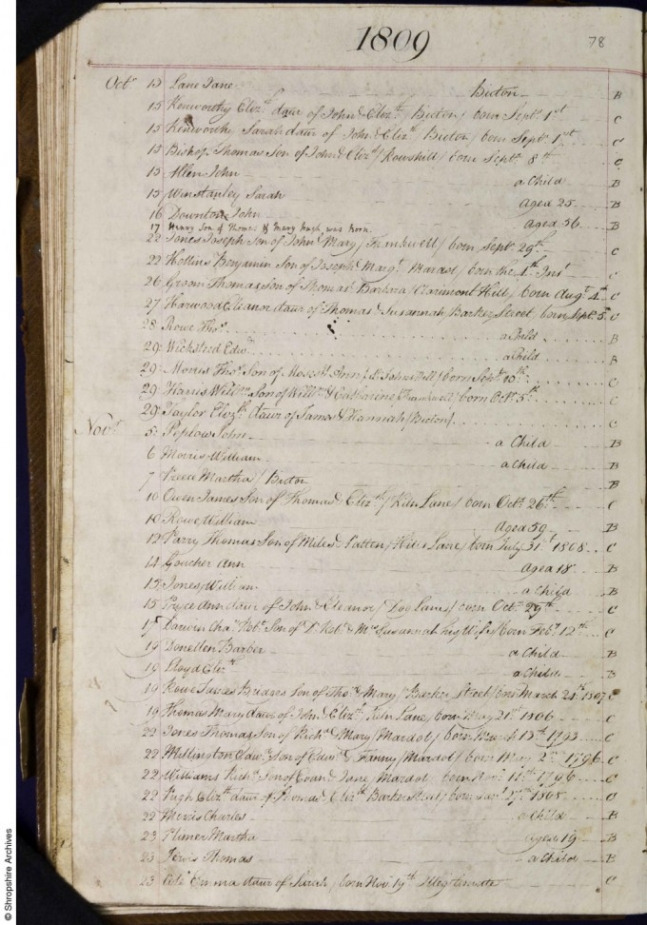 1809
78
Octr 13 Lane Jane Bicton B
15 Kenworthy Elizth daur of John & Elizth / Bicton / born Septr 1st C
15 Kenworthy Sarah daur of John & Elizth / Bicton / born Septr 1st C
15 Bishop Thomas Son of John & Elizth / Rowshill / born Septr 8th C
15 Allen John a Child B
15 Winstanley Sarah aged 25 B
16 Downton John aged 56 B
17 Henry Son of Thomas & Mary Pugh was Born
22 Jones Joseph Son of John & Mary / Frankwell / born Septr 29th C
22 Hollins Benjamin Son of Joseph & Margt Mardol / born the 4th Inst C
26 Groom Thomas son of Thomas & Barbara / Claremont Hill / born Augt 4th C
27 Harwood Eleanor daur of Thomas & Susannah / Barker Street / born Septr 5 C
28 Rowe Thos a Child B
29 Wicksteed Edwd a Child B
29 Morris Thos Son of Moses & Ann / St Johns Hill / born Septr 10th C
29 Harris Willm Son of Willm & Catharine / Frankwell / born Octr 5th C
29 Taylor Elizth daur of James & Hannah / Bicton / C
Novr 5 Peplow John a Child B
6 Morris William a Child B
7 Preece Martha / Bicton B
10 Owen James Son of Thomas & Elizth / Kiln Lane / born Octr 26th C
10 Rowe William aged 59 B
12 Parry Thomas Son of Miles & Patten / Kiln Lane / born July 31st 1808 C
14 Goucher Ann aged 18 B
15 Jones William a Child B
15 Price Ann daur of John & Eleanor / Dog Lane / born Octr 29th C
17 Darwin Chas Robt Son of Dr Robt & Mrs Susannah his Wife born Feby 12th C
19 Barber a Child B
19 Lloyd Elizth a Child B
19 Rowe Son of Thos & Mary / Barker Street / born March 24th 1807 C
19 Thomas Mary daur of John & Elizth / Kiln Lane / born May 21st 1806 C
22 Jones Thomas Son of Richd & Mary / Mardol / born March 13th 1793 C
22 Millington Edwd Son of Edwd & Fanny / Mardol / born May 2nd 1796 C
22 Williams Richd Son of & Jane / Mardol born Novr 11th 1796 C
22 Pugh Elizth daur of Thomas & Elizth Barker Street / born 1808 C
22 Morris Charles a Child B
23 Plimer Martha aged 19 B
23 Jervis Thomas a Child B
23 Emma daur of Sarah / born Nov. 19th Illegitimate C
© Shropshire Archives